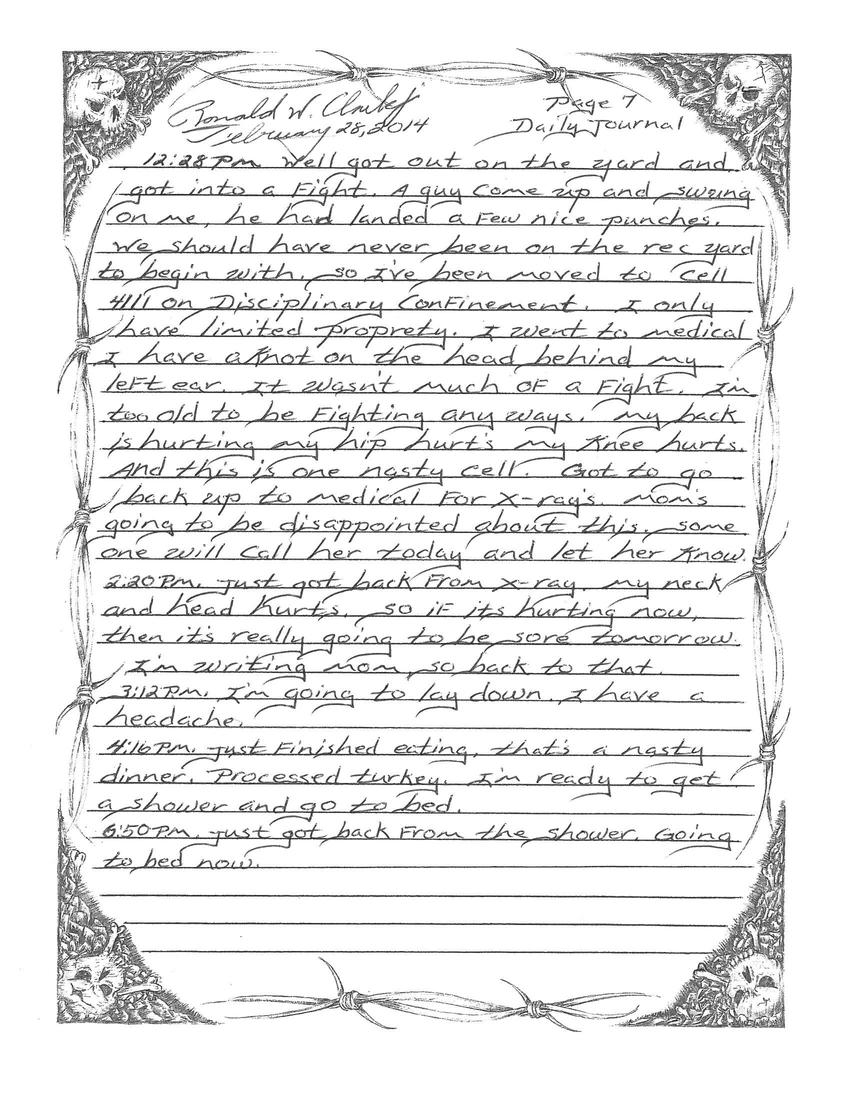 Ronald W. Clark Jr
Page 7
February 28, 2014
Daily Journal
12:28 PM. Well got out on the yard and
got into a Fight. A guy come up and swung
on me, he had landed a Few nice punches.
We should have never been on the rec yard
to begin with. so I've been moved to cell
4111 on Disciplinary Confinement. I only
have limited proprety. I went to medical
I have a Knot on the head behind my
left ear. It wasn't much of a Fight. I'm
too old to be Fighting any ways. My back
is hurting my hip hurt's my Knee hurts.
And this is one nasty cell. Got to go
back up to medical For X-ray's. Mom's
going to be disappointed about this. some
one will call her today and let her Know.
2:20 PM. just got back From X-ray. my neck
and head hurts. so if its hurting now,
then it's really going to be sore tomorrow.
I'm writing mom, so back to that.
3:12 PM. I'm going to lay down. I have a
headache.
4:16 PM. just Finished eating, that's a nasty
dinner. Processed turkey. I'm ready to get
a shower and go to bed.
6:50 PM. just got back From the shower. Going
to bed now.